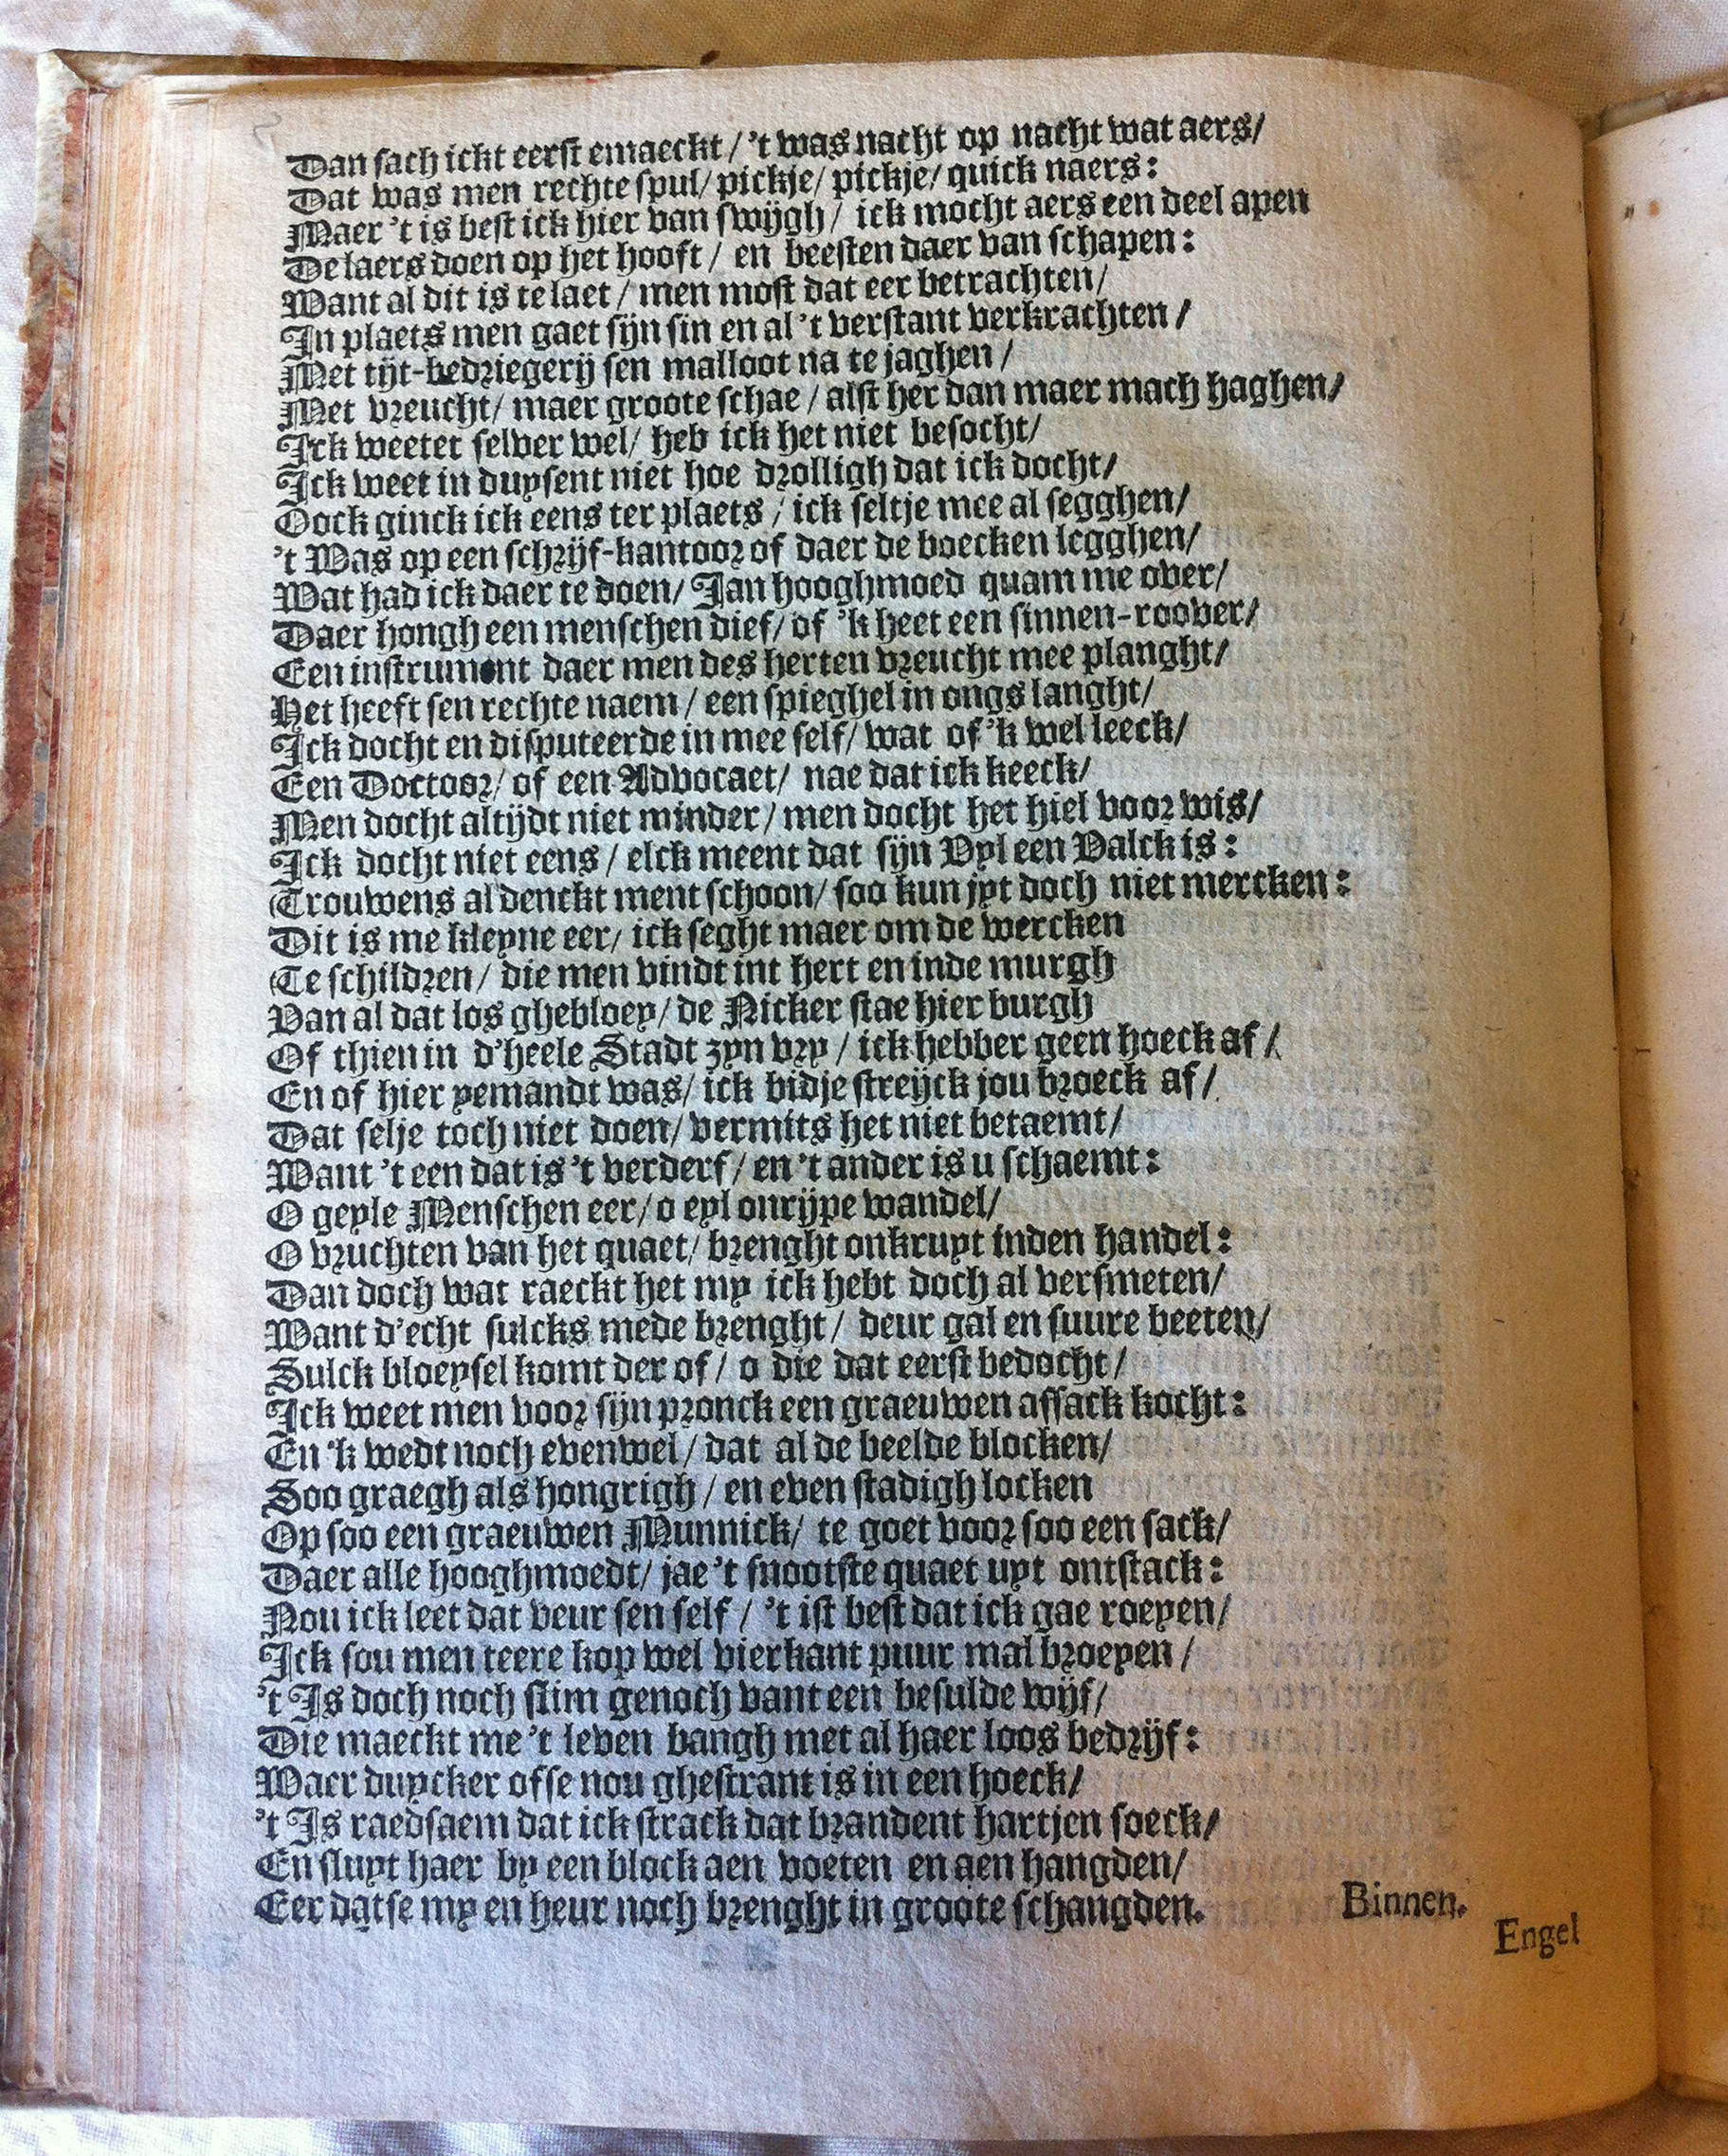 Dan sach ickt eerst emaeckt / 't was nacht op nacht wat aers/
Dat was men rechte spul/ pickje/ pickje/ quick naers:
Maer 't is best ick hier van swijgh / ick mocht aers een deel apen
De laers doen op het hooft / en beesten daer van schapen:
Want al dit is te laet / men most dat eer betrachten/
In plaets men gaet sijn sin en al 't verstant verkrachten /
Met tijt-bedriegerij sen malloot na te jaghen /
Met vreucht/ maer groote schae / alst her dan maer mach haghen/
Ick weetet selver wel/ heb ick het niet besocht/
Ick weet in duysent niet hoe drolligh dat ick docht/
Oock ginck ick eens ter plaets / ick seltje mee al segghen/
't Was op een schrijf-kantoor of daer de boecken legghen/
Wat had ick daer te doen/ Jan hooghmoed quam me over/
Daer hongh een menschen dief/ of 'k heet een sinnen-roover/
Een instrument daer men des herten vreucht mee planght/
Het heeft sen rechte naem / een spieghel in ongs langht/
Ick docht en disputeerde in mee self/ wat of 'k wel leeck/
Een Doctoor/ of een Advocaet/ nae dat ick keeck/
Men docht altijdt niet minder / men docht het hiel voor wis/
Ick docht niet eens / elck meent dat sijn Uyl een Valck is:
Trouwens al denckt ment schoon/ soo kun jyt doch niet mercken:
Dit is me kleyne eer/ ick seght maer om de wercken
Te schildren / die men vindt int hert en inde murgh
Van al dat los ghebloey/ de Nicker stae hier burgh
Of thien in d'heele Stadt zyn vry / ick hebber geen hoeck af /
En of hier yemandt was/ ick bidje streijck jou broeck af/
Dat selje toch niet doen/ vermits het niet betaemt/
Want 't een dat is 't verderf/ en 't ander is u schaemt:
O geyle Menschen eer/ o eyl onrijpe wandel/
O vruchten van het quaet/ brenght onkruyt inden handel:
Dan doch wat raeckt het my ick hebt doch al versmeten/
Want d'echt sulcks mede brenght / deur gal en suure beeten/
Sulck bloeysel komt der of/ o die dat eerst bedocht/
Ick weet men voor sijn pronck een graeuwen assack kocht:
En 'k wedt noch evenwel/ dat al de beelde blocken/
Soo graegh als hongrigh / en even stadigh locken
Op soo een graeuwen Munnick/ te goet voor soo een sack/
Daer alle hooghmoedt/ jae 't snootste quaet uyt ontstack:
Nou ick leet dat veur sen self / 't ist best dat ick gae roeyen/
Ick sou men teere kop wel vierkant puur mal broeyen /
't Is doch noch slim genoch vant een besulde wijf/
Die maeckt me 't leven bangh met al haer loos bedrijf:
Waer duycker ofse nou ghestrant is in een hoeck/
't Is raedsaem dat ick strack dat brandent hartjen soeck/
En sluyt haer by een block aen voeten en aen hangden/
Eer datse my en heur noch brenght in groote schangden. Binnen.
Engel